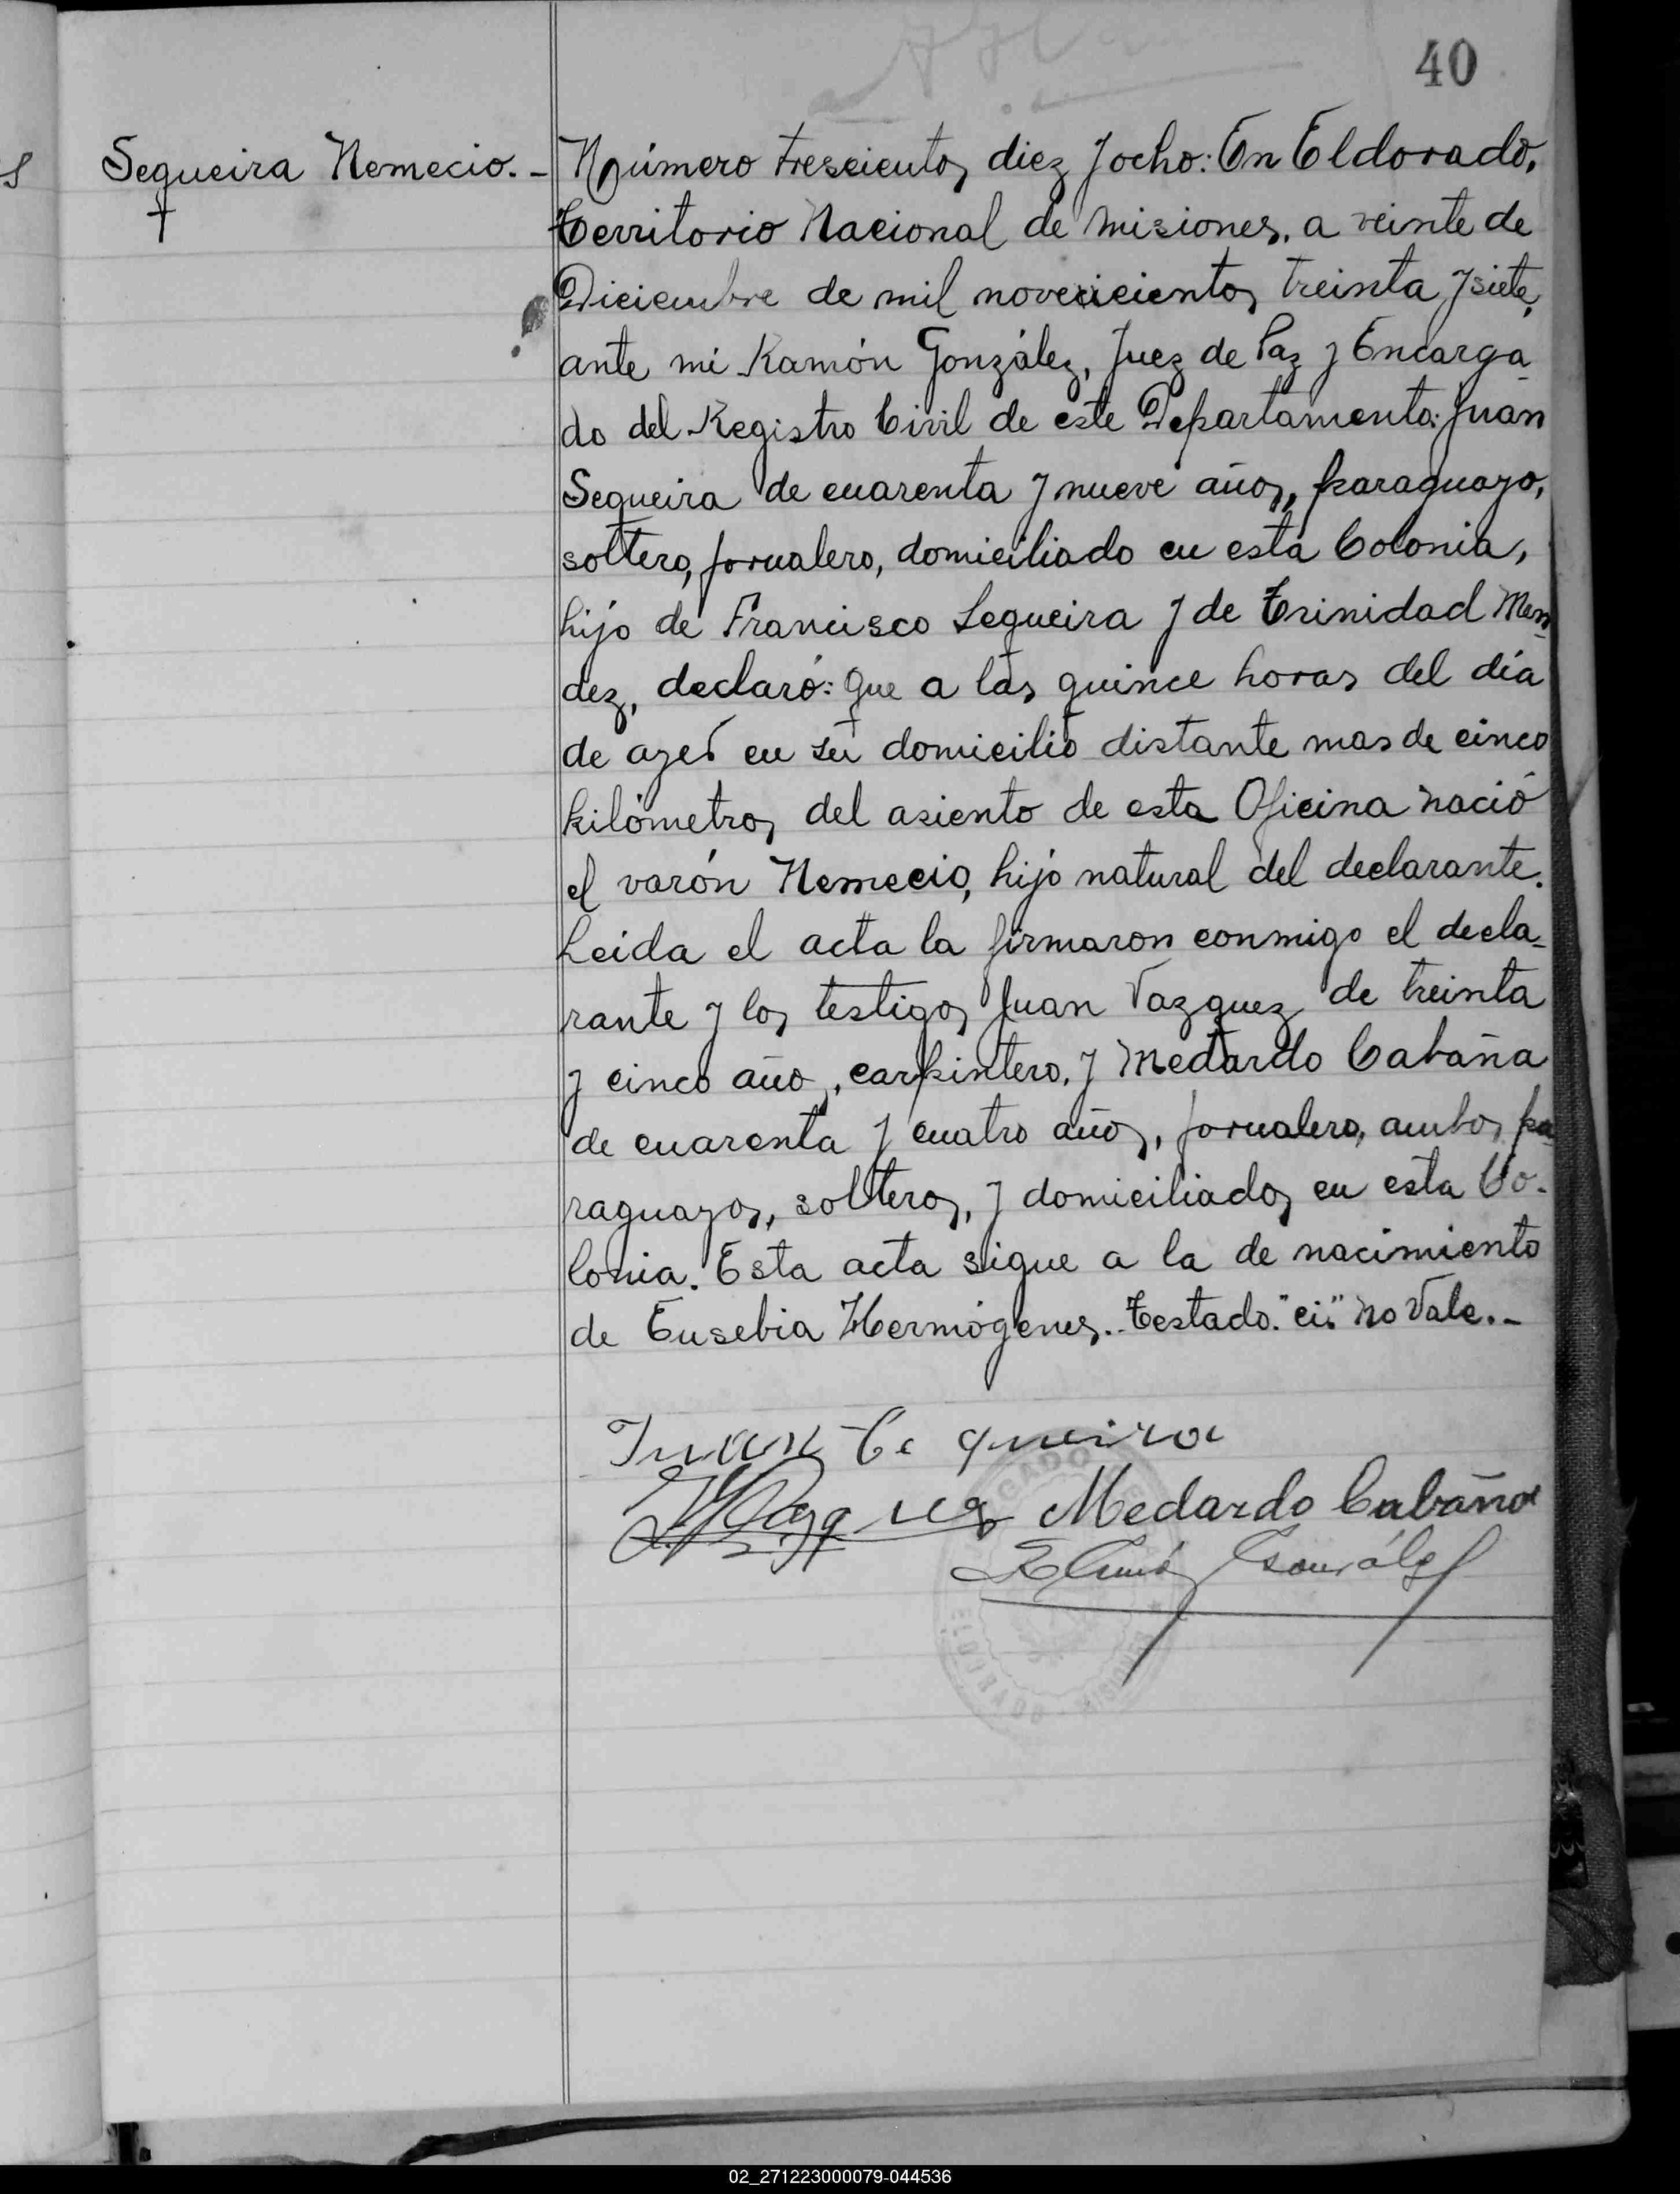 40
Sequeira Nemecio. -
†
Número trescientos diez y ocho: En Eldorado,
Territorio Nacional de Misiones, a veinte de
Diciembre de mil noveicientos treinta y siete,
ante mi Ramón González, Juez de Paz y Encarga-
do del Registro Civil de este Departamento: Juan
Sequeira de cuarenta y nueve años, paraguayo,
soltero, jornalero, domiciliado en esta Colonia,
hijo de Francisco Sequeira y de Trinidad Men-
dez, declaró: Que a las quince horas del día
de ayer en su domicilio distante mas de cinco
kilómetros del asiento de esta Oficina nació
el varón Nemecio, hijo natural del declarante.
Leida el acta la firmaron conmigo el decla-
rante y los testigos Juan Vazquez de treinta
y cinco años, carpintero, y Medardo Cabaña
de cuarenta y cuatro años, jornalero, ambos pa-
raguayos, solteros, y domiciliados en esta Co-
lonia. Esta acta sigue a la de nacimiento
de Eusebia Hermógenes.. Testado. "ei". no vale. -
Juan Se queira
J Vazquez Medardo Cabaña
Ramón González
ELDORADO - MISIONES
02_271223000079-044536